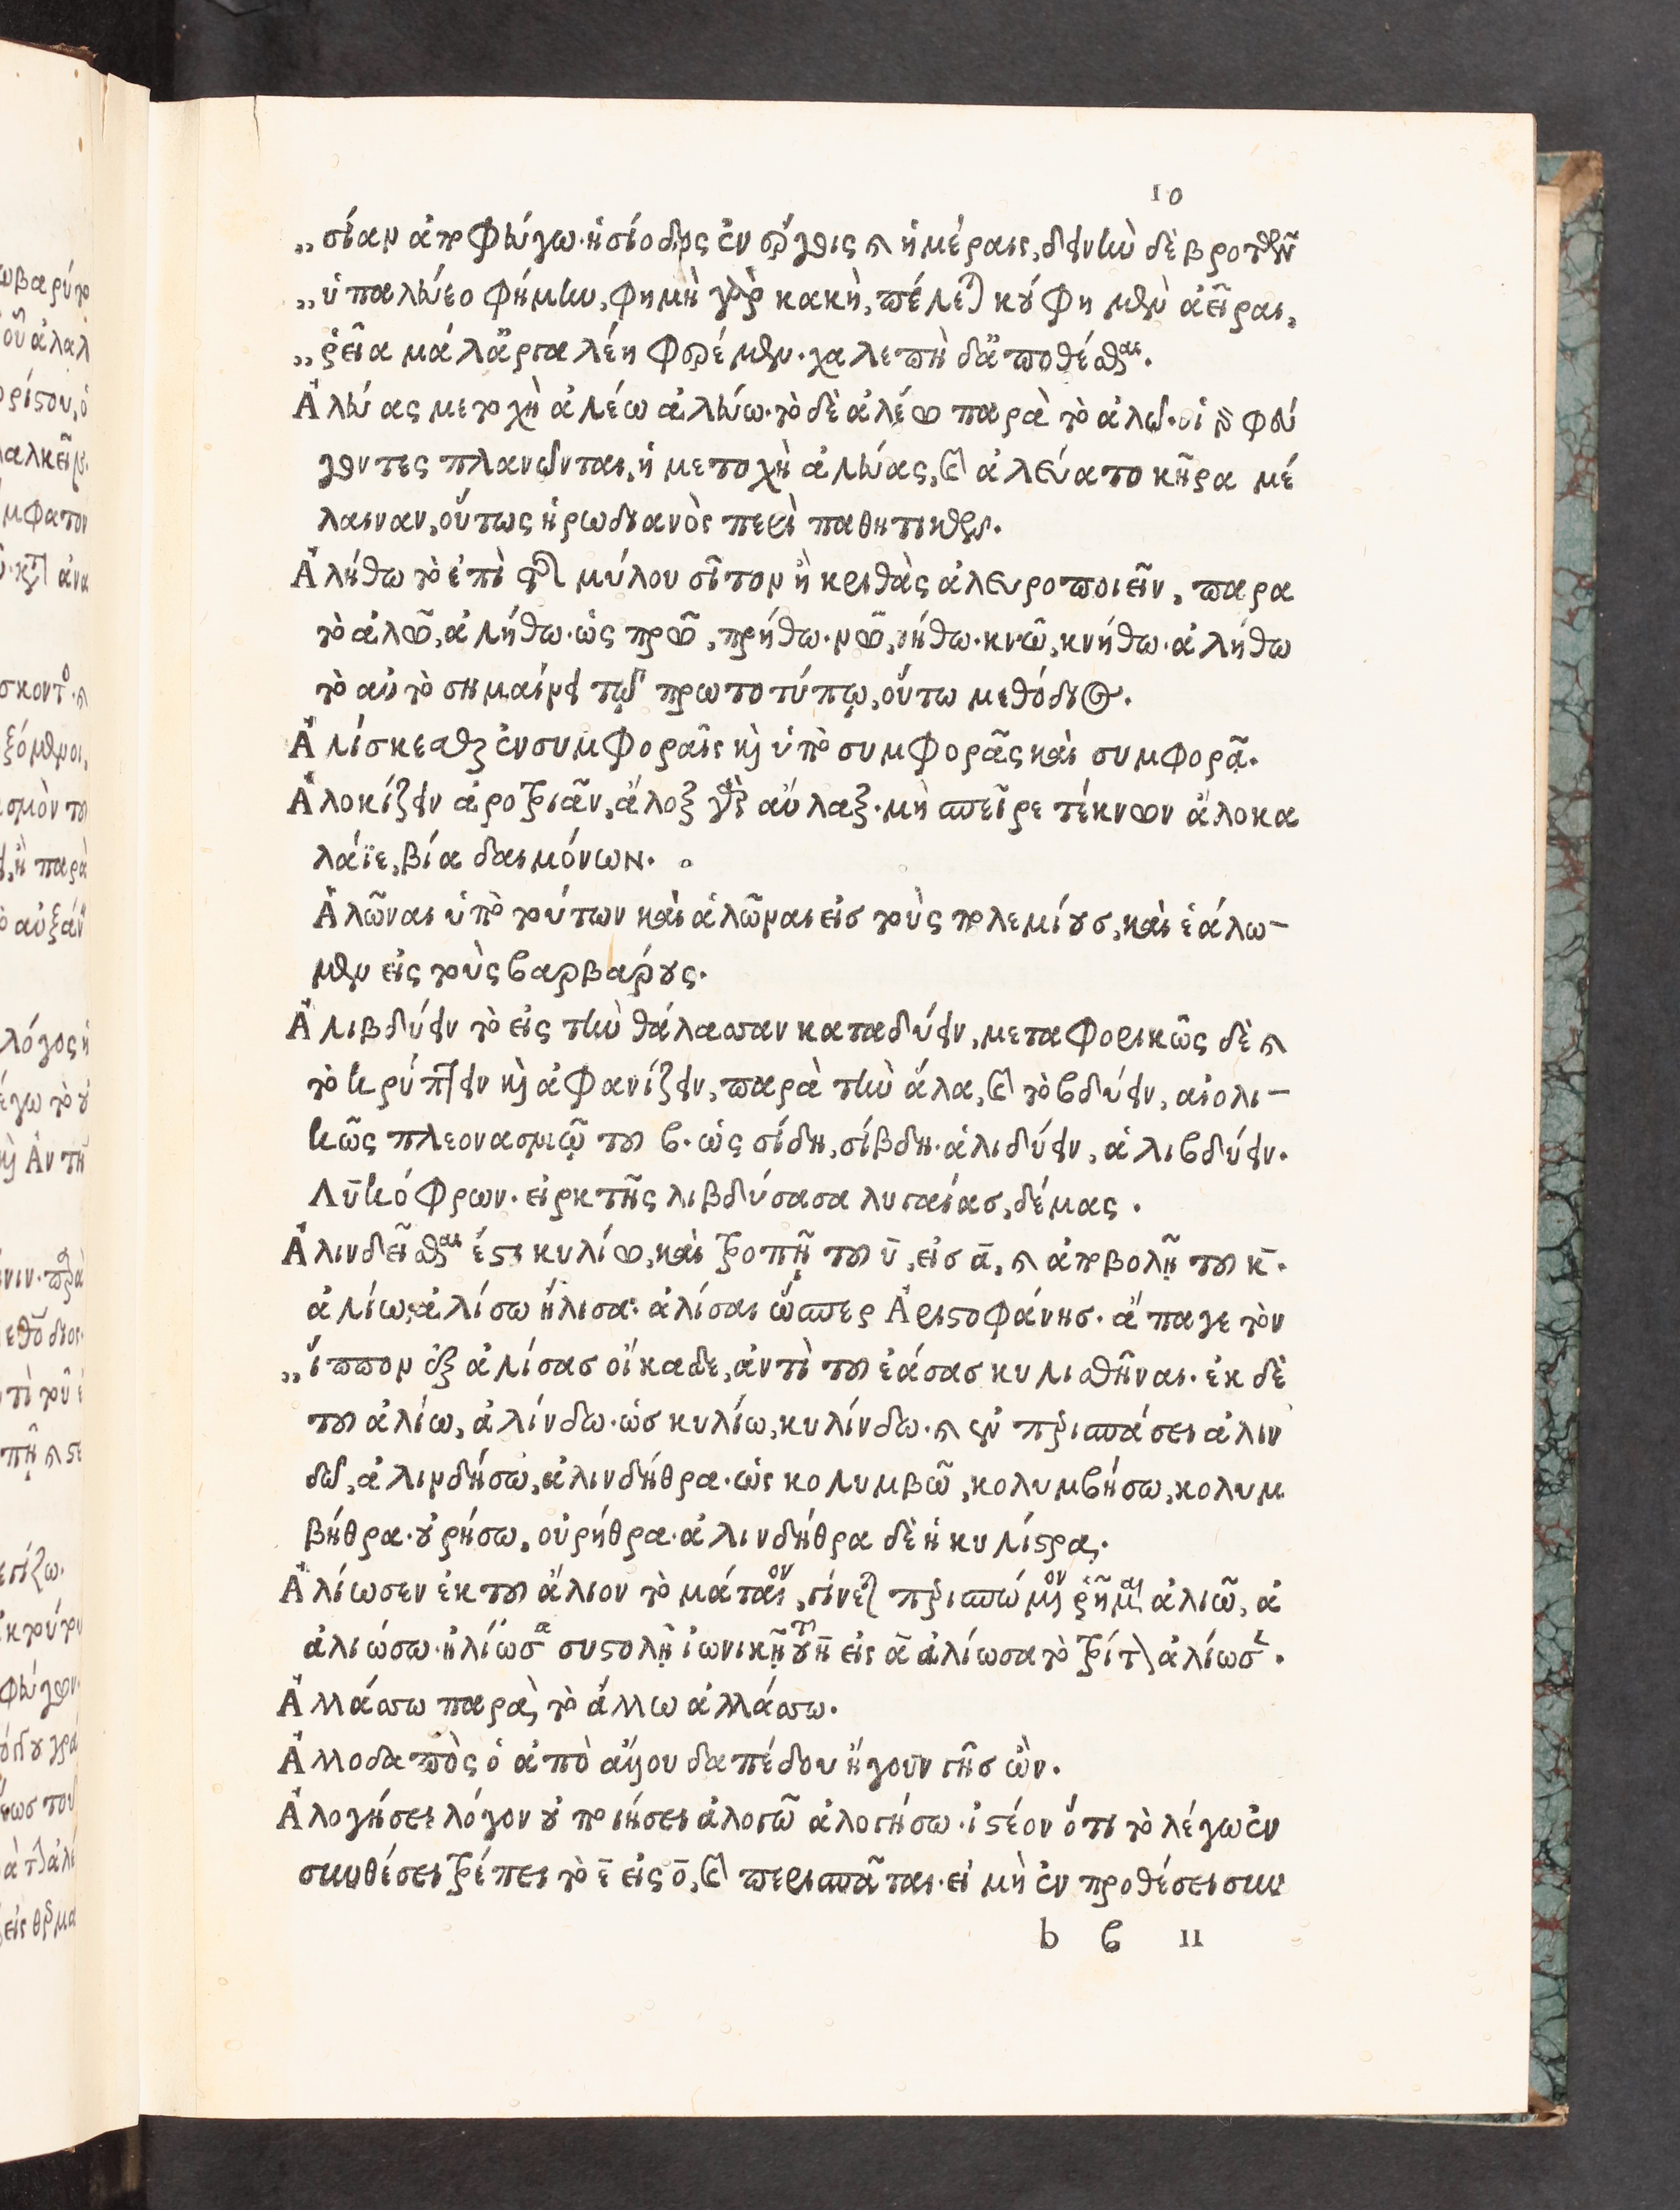 10
„σίαν ἀποφεύγω·ἡσίοδος ἐν ἔργοις καὶ ἡμέραις, δεινὴν δὲ βροτῶν
„ὑπαλεύεο φήμην, φημὴ γὰρ κακὴ, πέλεται κούφη μὲν ἀεῖραι,
„ῥεῖα μάλ' ἀργαλέη φερέμεν·χαλεπὴ δ' ἀποθέσθαι.
Ἀλεύας μετοχὴ ἀλέω ἀλεύω·τὸ δὲ ἀλέω παρὰ τὸ ἀλῶ·οἱ γὰρ φεύ
γοντες πλανῶνται, ἡ μετοχὴ ἀλεύας, καὶ ἀλεύατο κῆρα μέ
λαιναν, οὕτως ἡρωδιανὸς περὶ παθητικῶν.
Ἀλήθω τὸ ἐπὶ τοῦ μύλου σῖτον ἢ κριθὰς ἀλευροποιεῖν, παρα
τὸ ἀλῶ, ἀλήθω·ὡς πρῶ, πρήθω·νῶ, νήθω·κνῶ, κνήθω·ἀλήθω
τὸ αὐτὸ σημαίνει τῷ πρωτοτύπῳ, οὕτω μεθόδιος.
Ἀλίσκεσθαι ἐν συμφοραῖς καὶ ὑπὸ συμφορᾶς καὶ συμφορᾷ.
Ἀλοκίζειν ἀροτριᾶν, ἄλοξ γὰρ αὖλαξ·μὴ σπεῖρε τέκνων ἄλοκα
λάϊε, βία δαιμόνων.
Ἁλῶναι ὑπὸ τούτων καὶ ἁλῶναι εἰσ τοὺς πολεμίουσ, καὶ ἑάλω-
μεν εἰς τοὺς βαρβαρόυς.
Ἁλιβδύειν τὸ εἰς τὴν θάλασσαν καταδύειν, μεταφορικῶς δὲ καὶ
τὸ κρύπτειν καὶ ἀφανίζειν, παρὰ τὴν ἅλα, καὶ τὸ βδύειν, αἰολι-
κῶς πλεονασμῷ τοῦ β·ὡς σίδη, σίβδη·ἁλιδύειν, ἁλιβδύειν.
Λῡκόφρων·εἱρκτῆς λιβδύσασα λυγαίασ, δέμας.
Ἀλινδεῖσθαι ἔστι κυλίω, καὶ τροπῇ τοῦ ῡ, εἰσ ᾱ, καὶ ἀποβολῇ τοῦ κ̄.
ἀλίω, ἀλίσω ἥλισα·ἀλίσαι ὥσπερ Ἀριστοφάνησ·ἄπαγε τὸν
„ἵππον ἐξαλίσασ οἴκαδε, ἀντὶ τοῦ ἐάσασ κυλισθῆναι·ἐκ δὲ
τοῦ ἀλίω, ἀλίνδω·ὡσ κυλίω, κυλίνδω·καὶ ἐν περισπάσει ἀλιν
δῶ, ἀλινδήσω, ἀλινδήθρα·ὡς κολυμβῶ, κολυμβήσω, κολυμ
βήθρα·οὐρήσω, οὐρήθρα·ἀλινδήθρα δὲ ἡ κυλίστρα,.
Ἁλίωσεν ἐκ τοῦ ἅλιον τὸ μάταιον, γίνεται περισπώμενον ῥῆμα ἁλιῶ, ἁ
ἁλιώσω·ἡλίωσα συστολῇ ἰωνικῇ τοῦ η̄ εἰς ᾱ ἁλίωσα τὸ τρίτον ἁλίωσε.
Ἀλλάσσω παρὰ, τὸ ἄλλω ἀλλάσσω.
Ἀλλοδαπὸς ὁ ἀπὸ ἄλλου δαπέδου ἤγουν γῆσ ὢν.
Ἀλογήσει λόγον οὐ ποιήσει ἀλογῶ ἀλογήσω·ἰστέον ὅτι τὸ λέγω ἐν
συνθέσει τρέπει τὸ ε̄ εἰς ο̄, καὶ περισπᾶται·εἰ μὴ ἐν προθέσει συν
b β II